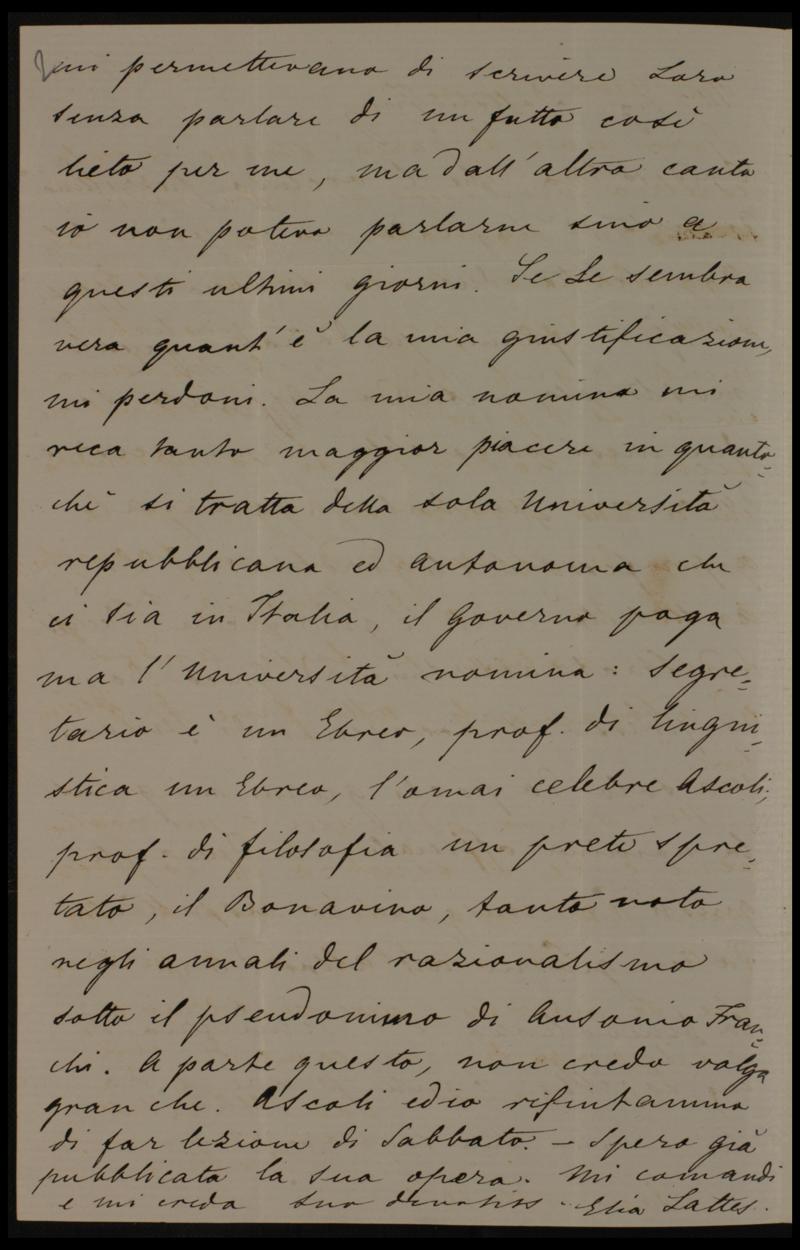 mi permettevano di scrivere Loro
senza parlare di un fatto così
lieto per me, ma dall'altro canto
io non poteva parlarne sino a
questi ultimi giorni. Se Le sembra
vera quant'è la mia giustificazione,
mi perdoni. La mia nomina mi
reca tanto maggior piacere in quanto=
chè si tratta della sola Università
repubblicana ed autonoma che
ci sia in Italia, il Governo paga
ma l'Università nomina: segre=
tario è un Ebreo, prof. di lingui=
stica un Ebreo, l'omai celebre Ascoli;
prof. di filosofia un prete spre=
tato, il Bonavino, tanto noto
negli annali del razionalismo
sotto il pseudonimo di Ausonio Fran=
chi. A parte questo, non credo valga
gran che. Ascoli ed io rifiutammo
di far lezione di Sabbato. — Spero già
pubblicata la sua opera. Mi comandi
e mi creda suo devotiss. Elia Lattes.